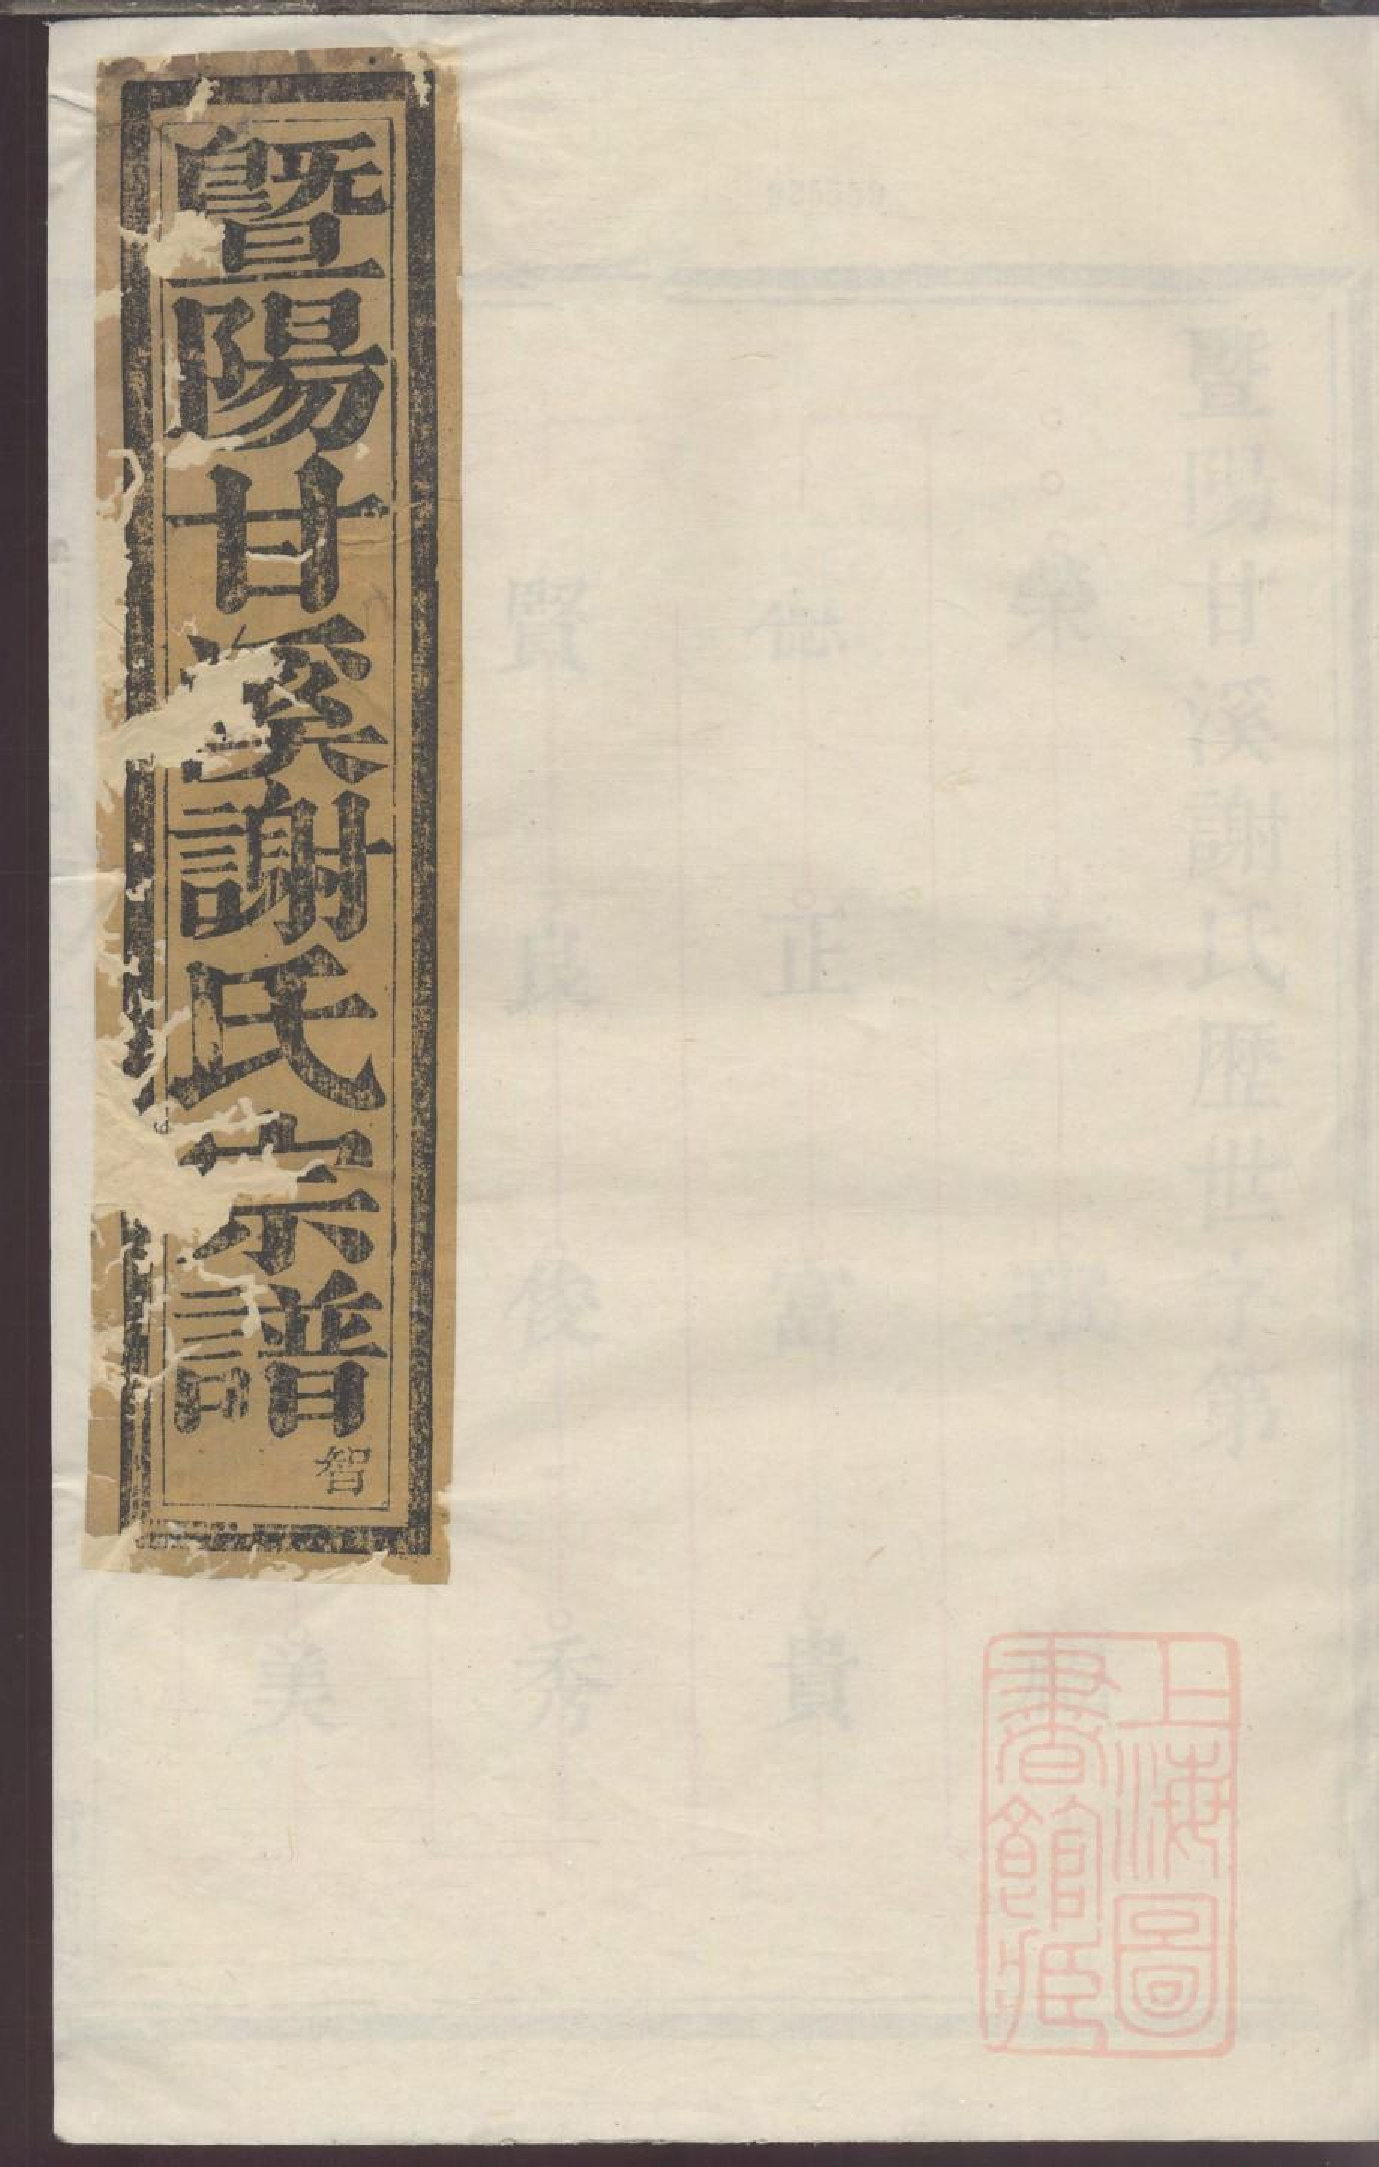 暨陽甘溪謝氏宗譜
智
上海圖
書館藏
暨陽甘溪謝氏歷世字第
榮 文
世 正 富 貴
賢 良 俊 秀
美